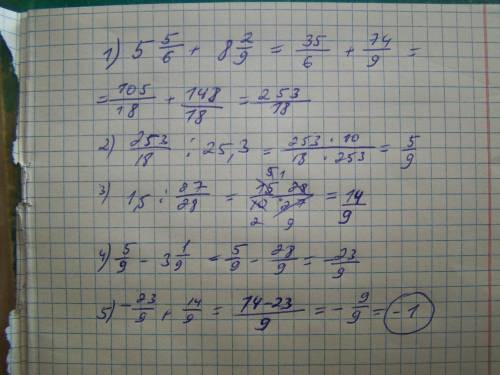 1) 5 5/6 + 8 2/9 = 35/6 + 74/9 =
= 105/18 + 148/18 = 253/18
2) 253/18 : 25,3 = 253 · 10/18 · 253 = 5/9
3) 1,5 : 27/28 = 15 · 28/10 · 27 = 14/9
5 1
2 9
4) 5/9 - 3 1/9 = 5/9 - 28/9 = -23/9
5) -23/9 + 14/9 = 14-23/9 = - 9/9 = -1